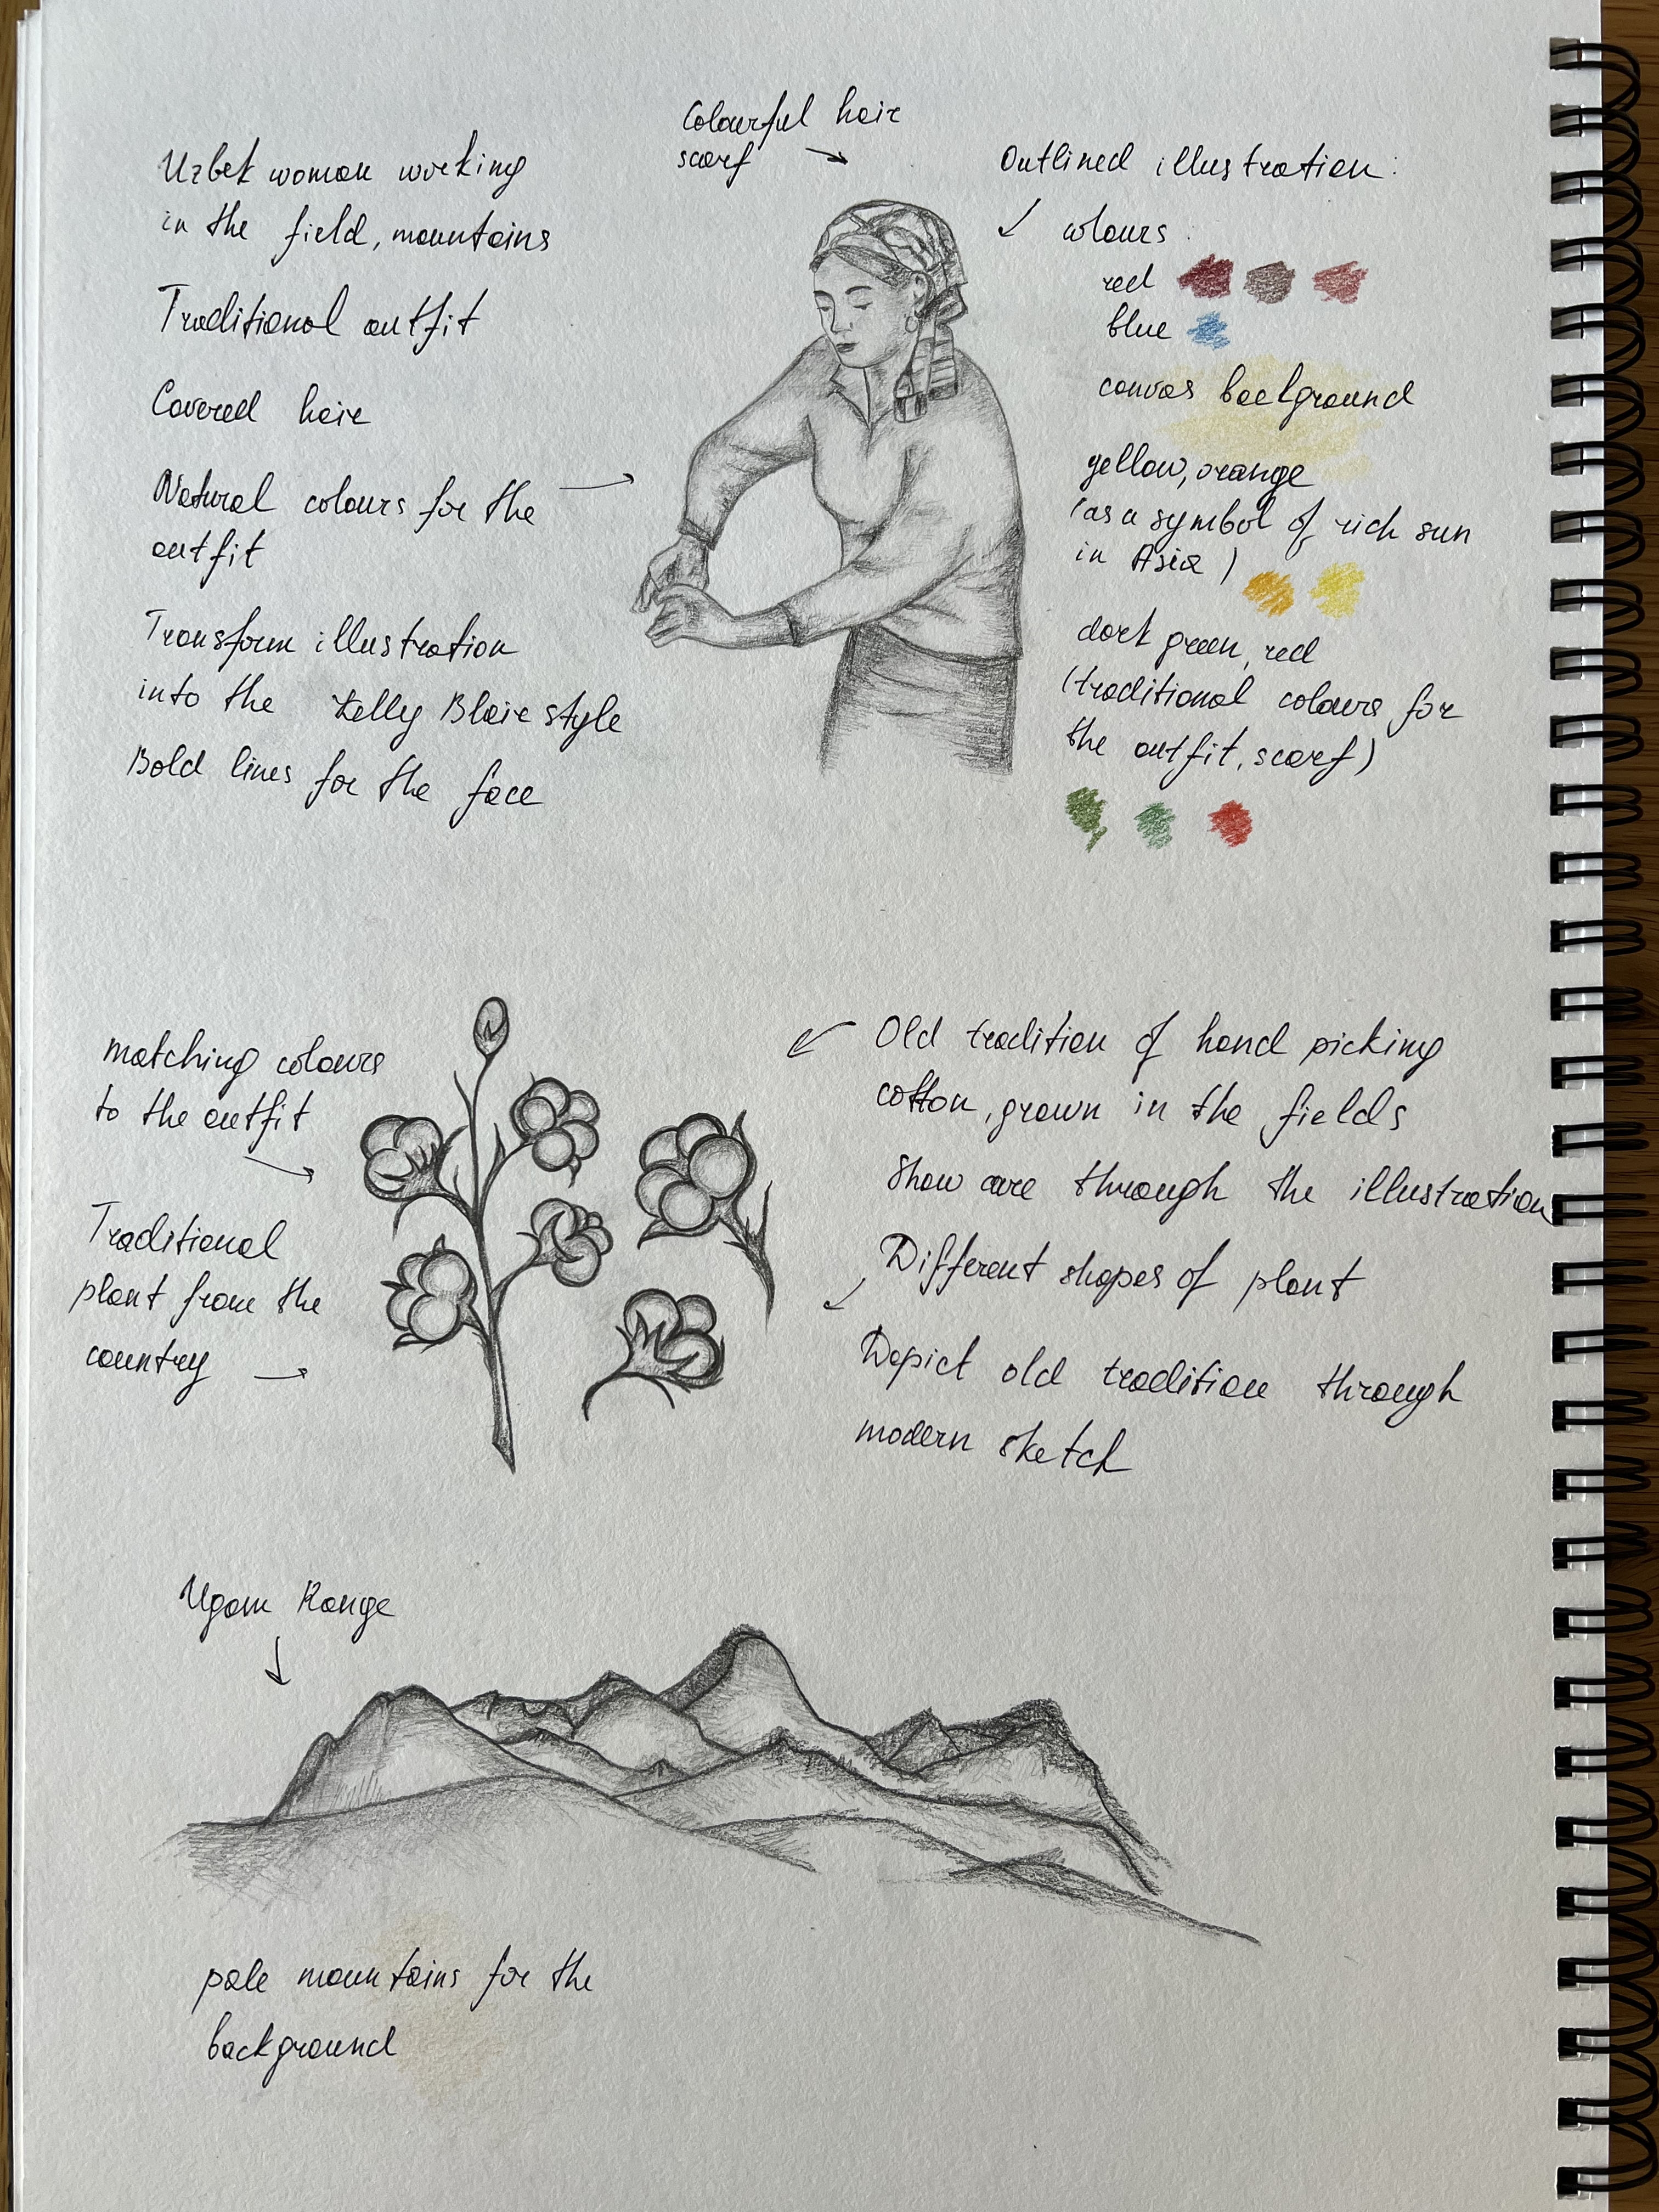 Colourful hair
scarf
Uzbek woman working
in the field, mountains
Traditional outfit
Covered hair
Natural colours for the
outfit
Transform illustration
into the Kelly Blair style
Bold lines for the face
Outlined illustration:
colours:
red
blue
canvas background
yellow, orange
(as a symbol of rich sun
in Asia)
dark green, red
(traditional colours for
the outfit, scarf)
matching colours
to the outfit
Traditional
plant from the
country
Old tradition of hand picking
cotton, grown in the fields
Show care through the illustration
Different shapes of plant
Depict old tradition through
modern sketch
Ugam Range
pale mountains for the
background